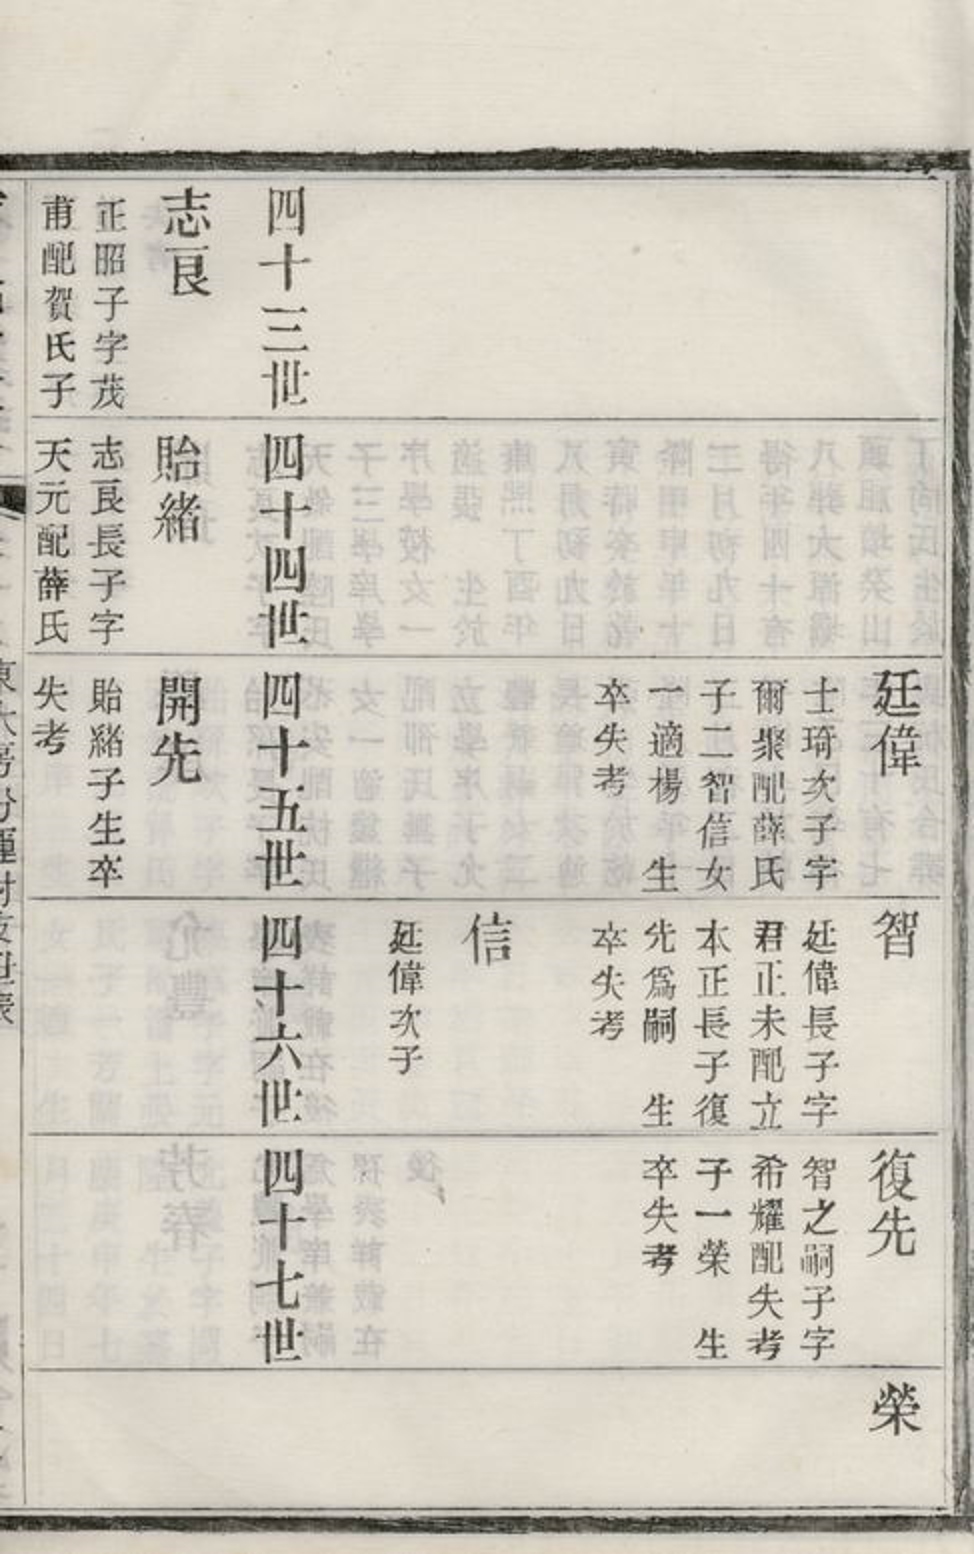 廷偉
士琦次子字
爾聚配薛氏
子二智信女
一適楊 生
卒失考
智
廷偉長子字
君正未配立
本正長子復
先爲嗣 生
卒失考
信
廷偉次子
復先
智之嗣子字
希耀配失考
子一榮 生
卒失考
榮
四十三世
四十四世
四十五世
四十六世
四十七世
志良
正昭子字茂
甫配賀氏子
貽緒
志良長子字
天元配薛氏
開先
貽緒子生卒
失考